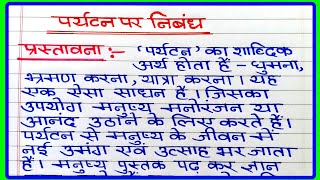 पर्यटन पर निबंध
प्रस्तावना :- 'पर्यटन' का शाब्दिक
अर्थ होता है - घुमना,
भ्रमण करना, यात्रा करना। यह
एक ऐसा साधन है। जिसका
उपयोग मनुष्य मनोरंजन या
आनंद उठाने के लिए करते हैं।
पर्यटन से मनुष्य के जीवन में
नई उमंग एवं उत्साह भर जाता
है। मनुष्य पुस्तक पढ़ कर ज्ञान